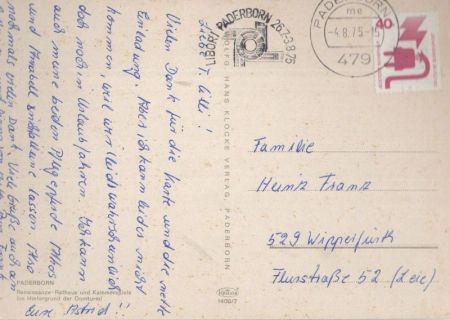 Liebe T. Lilli!
Vielen Dank für die Karte und die nette
Einladung. Aber ich kann leider nicht
kommen, weil wir leider wahrscheinlich
doch noch in Urlaub fahren. Ich kann
auch meine beiden Pflegepferde
und Anabell nicht alleine lassen. Also
nochmals vielen Dank. Viele Grüße auch an
Eure Astrid!!
PADERBORN
Renaissance-Rathaus und Kammerspiele
(im Hintergrund der Domturm)
WOLFG. HANS KLOCKE VERLAG, PADERBORN
Krüger
1400/7
LIBORI PADERBORN 26.7.-3.8.75
PADERBORN
me
-4.8.75-15
479
40
Familie
Heinz Franz
529 Wipperfürth
Flurstraße 52 (Leie)